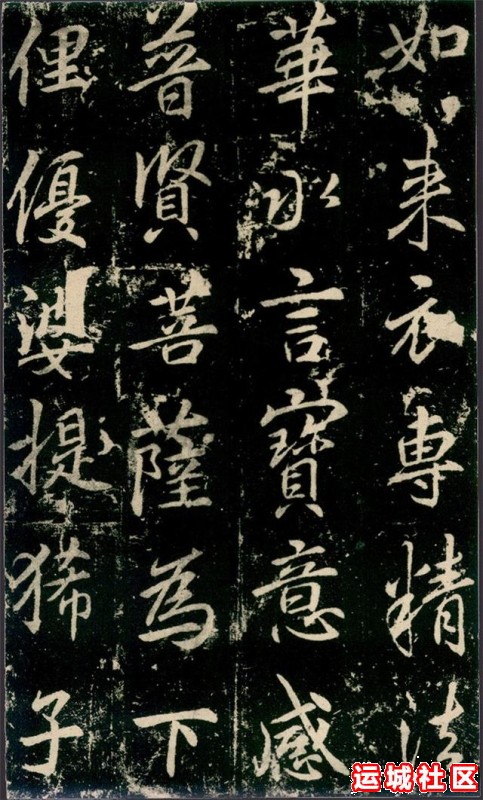 如来衣専精法
華永言寶意感
普賢菩薩為下
俚優婆提狶子
运城社区